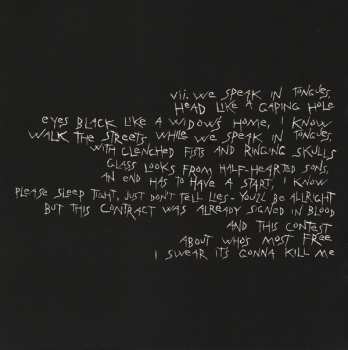 vii. WE SPEAK IN TONGUES,
HEAD LIKE A GAPING HOLE
EYES BLACK LIKE A WIDOWS HOME, I KNOW
WALK THE STREETS WHILE WE SPEAK IN TONGUES,
WITH CLENCHED FISTS AND RINGING SKULLS
GLASS LOOKS FROM HALF-HEARTED SONS,
AN END HAS TO HAVE A START, I KNOW
PLEASE SLEEP TIGHT, JUST DON'T TELL LIES - YOU'LL BE ALRIGHT
BUT THIS CONTRACT WAS ALREADY SIGNED IN BLOOD
AND THIS CONTEST
ABOUT WHO'S MOST FREE
I SWEAR IT'S GONNA KILL ME